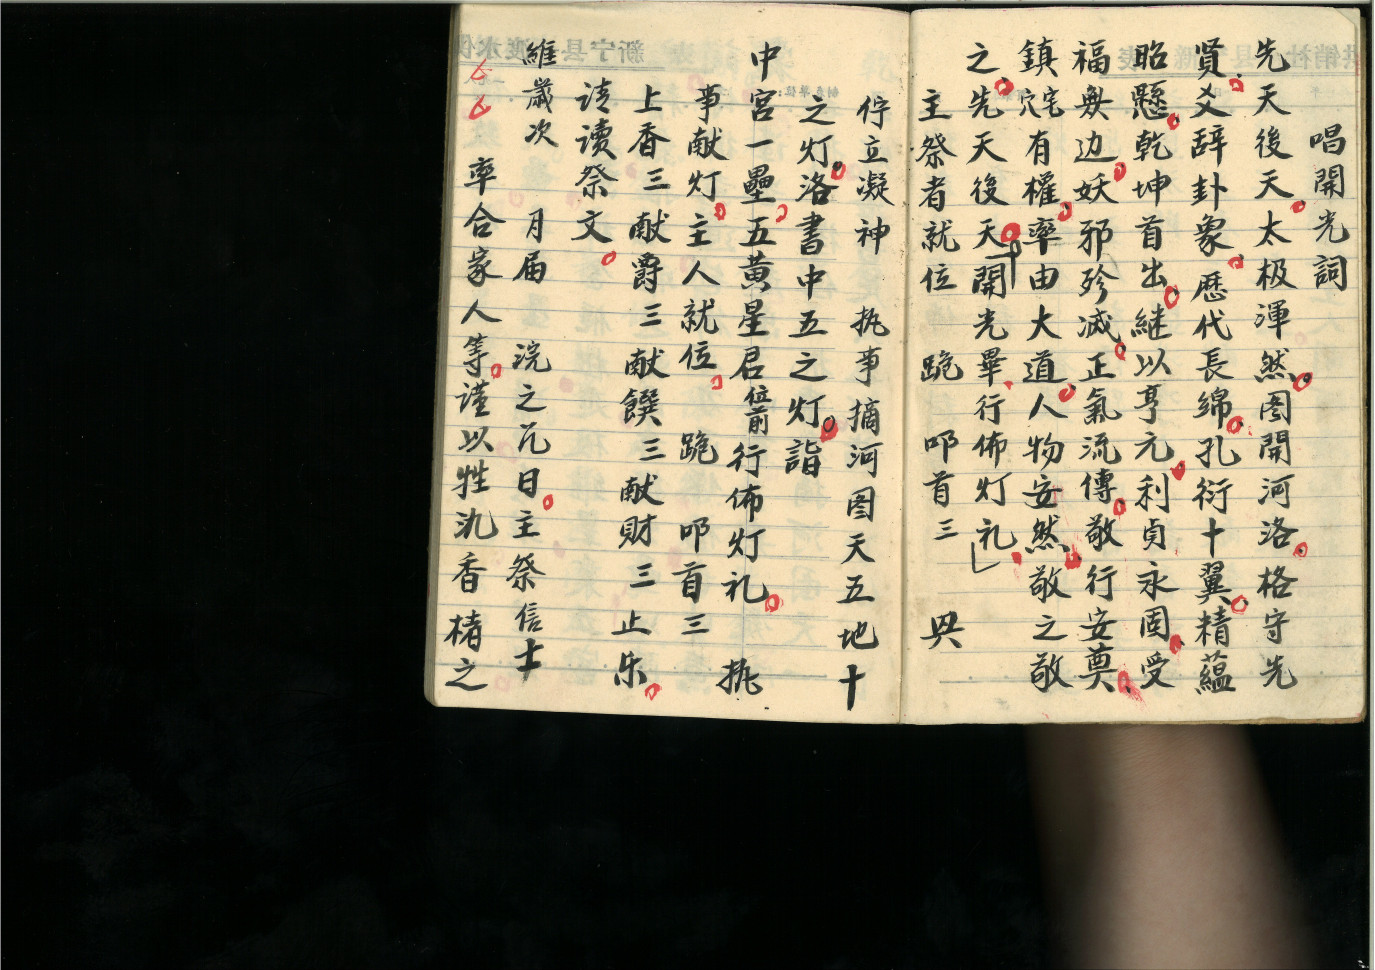 唱開光詞
先天後天太极渾然图開河洛格守先
贤爻辞卦象歷代長綿孔衍十翼精蘊
昭懸乾坤首出継以亨元利貞永固受
福無边妖邪殄滅正氣流傳敬行安奠
鎮宅有權率由大道人物安然敬之敬
之先天後天開光畢行佈灯礼
主祭者就位 跪 叩首三 興
佇立凝神 执事摘河图天五地十
之灯洛書中五之灯詣
中宫一壘五黄星君位前行佈灯礼 执
事献灯主人就位 跪 叩首三
上香三献爵三献饌三献財三止乐
读祭文
維歲次 月届 浣之 日主祭信士
率合家人等谨以牲 香楮之